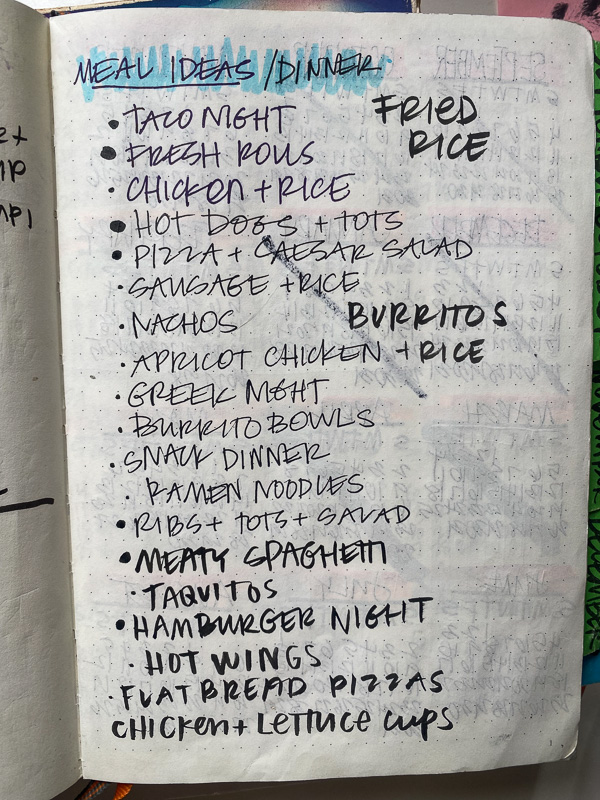 MEAL IDEAS / DINNER
• TACO NIGHT
FRIED
RICE
• FRESH ROLLS
• CHICKEN + RICE
• HOT DOGS + TOTS
• PIZZA + CAESAR SALAD
• SAUSAGE + RICE
• NACHOS
BURRITOS
+ RICE
• APRICOT CHICKEN
• GREEK NIGHT
• BURRITO BOWLS
• SNACK DINNER
• RAMEN NOODLES
• RIBS + TOTS + SALAD
• MEATY SPAGHETTI
• TAQUITOS
• HAMBURGER NIGHT
• HOT WINGS
• FLAT BREAD PIZZAS
CHICKEN + LETTUCE CUPS